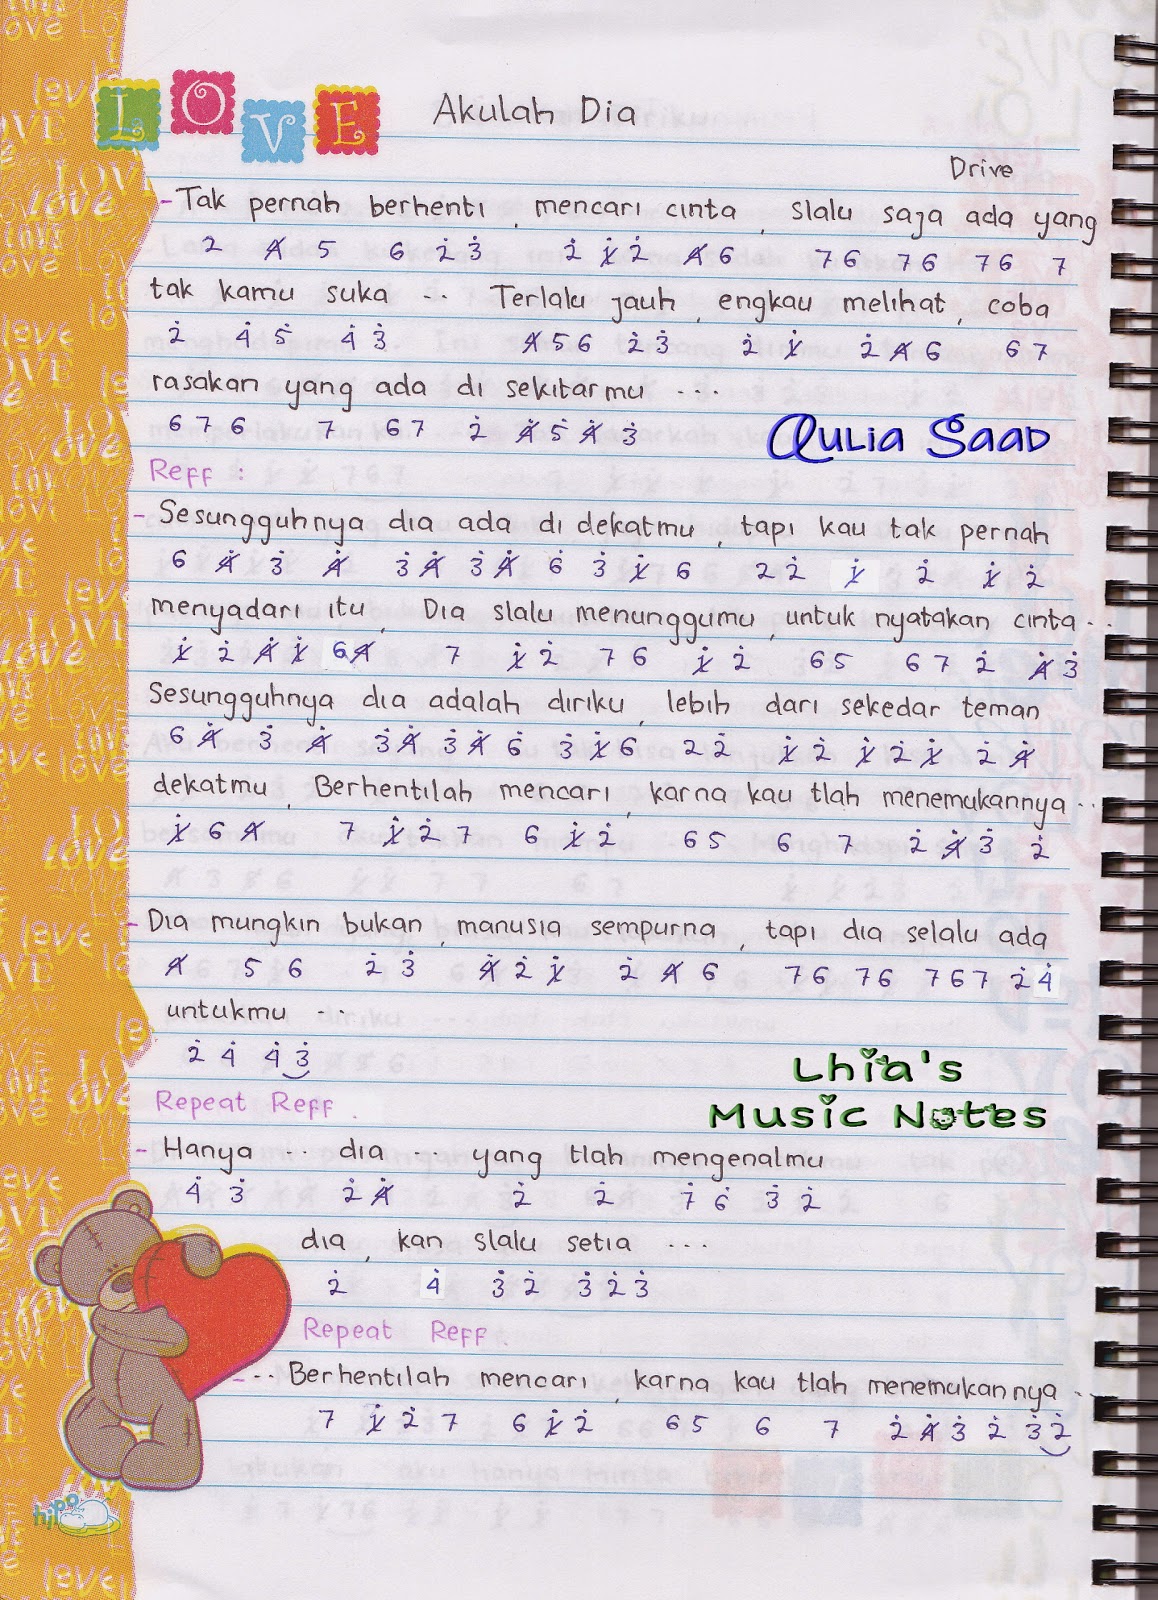 LOVE
Akulah Dia
Drive
- Tak pernah berhenti, mencari cinta, slalu saja ada yang
2 4̸ 5 6 2̇ 3̇ 2̇ 1̸̇ 2̇ 4̸ 6 7 6 7 6 7 6 7
tak kamu suka ... Terlalu jauh, engkau melihat, coba
2̇ 4̇ 5̇ 4̇ 3̇ 4̸ 5 6 2̇ 3̇ 2̇ 1̸̇ 2̇ 4̸ 6 6 7
rasakan yang ada di sekitarmu ...
6 7 6 7 6 7 2̇ 4̸̇ 5̇ 4̸̇ 3̇
Aulia Saad
Reff :
- Sesungguhnya dia ada di dekatmu, tapi kau tak pernah
6 4̸̇ 3̇ 4̸̇ 3̇ 4̸̇ 3̇ 4̸̇ 6̇ 3̇ 1̸̇ 6 2̇ 2̇ 1̸̇ 2̇ 1̸̇ 2̇
menyadari itu, Dia slalu menunggumu, untuk nyatakan cinta ..
1̸̇ 2̇ 4̸̇ 1̸̇ 6 4̸ 7 1̸̇ 2̇ 7 6 1̸̇ 2̇ 6 5 6 7 2̇ 4̸̇ 3̇
Sesungguhnya dia adalah diriku, lebih dari sekedar teman
6 4̸̇ 3̇ 4̸̇ 3̇ 4̸̇ 3̇ 4̸̇ 6̇ 3̇ 1̸̇ 6 2̇ 2̇ 1̸̇ 2̇ 1̸̇ 2̇ 1̸̇ 2̇ 4̸̇
dekatmu, Berhentilah mencari, karna kau tlah menemukannya ..
1̸̇ 6 4̸ 7 1̸̇ 2̇ 7 6 1̸̇ 2̇ 6 5 6 7 2̇ 4̸̇ 3̇ 2̇
- Dia mungkin bukan, manusia sempurna, tapi dia selalu ada
4̸ 5 6 2̇ 3̇ 4̸̇ 2̇ 1̸̇ 2̇ 4̸ 6 7 6 7 6 7 6 7 2̇ 4̇
untukmu ..
2̇ 4̇ 4̇ 3̇
Lhia's
Music Notes
Repeat Reff .
- Hanya .. dia .. yang tlah mengenalmu
4̇ 3̇ 2̇ 4̸̇ 2̇ 2̇ 7̇ 6̇ 3̇ 2̇
dia, kan slalu setia ...
2̇ 4̇ 3̇ 2̇ 3̇ 2̇ 3̇
Repeat Reff .
- .. Berhentilah mencari, karna kau tlah menemukannya ..
7 1̸̇ 2̇ 7 6 1̸̇ 2̇ 6 5 6 7 2̇ 4̸̇ 3̇ 2̇ 3̇ 2̇
hipo